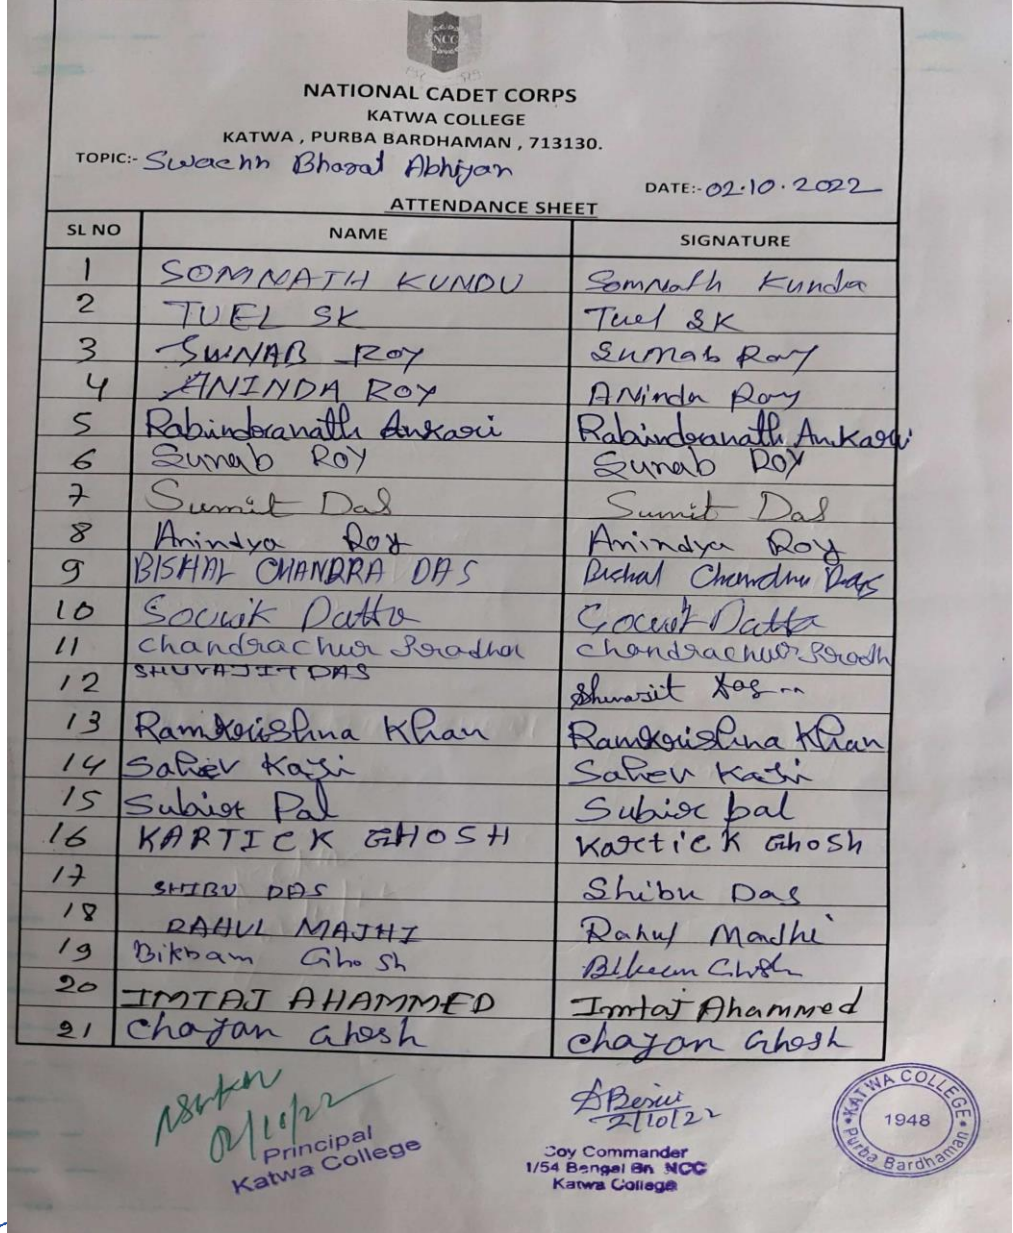 NCC
NATIONAL CADET CORPS
KATWA COLLEGE
KATWA , PURBA BARDHAMAN , 713130.
TOPIC:- Swachh Bharat Abhiyan
DATE:- 02.10.2022
ATTENDANCE SHEET
SL NO NAME SIGNATURE
1 SOMNATH KUNDU Somnath Kundu
2 TUEL SK Tuel SK
3 SWNAB ROY Sumab Roy
4 ANINDA ROY ANinda Roy
5 Rabindranath Ankari Rabindranath Ankari
6 Sunab ROY Sunab ROY
7 Sumit Das Sumit Das
8 Anindya Roy Anindya Roy
9 BISHAL CHANDRA DAS Bishal Chandra Das
10 Souvik Datta Souvik Datta
11 Chandrachur Pradhan Chandrachur Pradh
12 SHUVAJIT DAS Shuvajit Das
13 Ramkrishna Khan Ramkrishna Khan
14 Sahev Kazi Sahev Kazi
15 Subir Pal Subir pal
16 KARTICK GHOSH Kartick Ghosh
17 SHIBU DAS Shibu Das
18 RAHUL MAJHI Rahul Madhi
19 Bikram Ghosh Ghosh
20 IMTAJ AHAMMED Imtaj Ahammed
21 Chayan Ghosh Chayan Ghosh
02/10/22
Principal
Katwa College
2/10/22
Coy Commander
1/54 Bengal Bn NCC
Katwa College
KATWA COLLEGE
1948
Purba Bardhaman